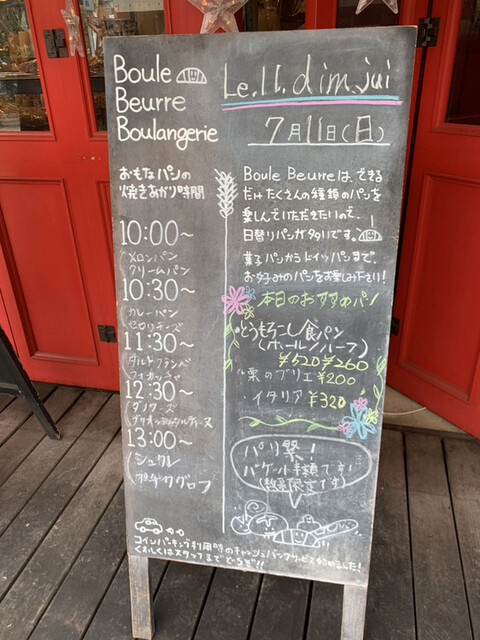 Boule
Beurre
Boulangerie
Le.11.dim.jui
7月11日(日)
おもなパンの
焼きあがり時間
10:00～
メロンパン
クリームパン
10:30～
カレーパン
セロリチーズ
11:30～
タルトフランベ
フォカッチャ
12:30～
ダノワーズ
13:00～
シュクレ
クグロフ
Boule Beurreは、できる
だけたくさんの種類のパンを
楽しんでいただきたいので、
日替りパンが多いです。
菓子パンからドイツパンまで、
お好みのパンをお楽しみ下さい!
本日のおすすめパン
とうもろこし食パン
(ホール/ハーフ)
¥520 ¥260
・栗のブリエ ¥200
・イタリア ¥320
パリ祭!
バゲット半額です!
(数量限定です)
コインパーキング利用時のキャッシュバックサービス始めました!
くわしくはスタッフまでどうぞ!!